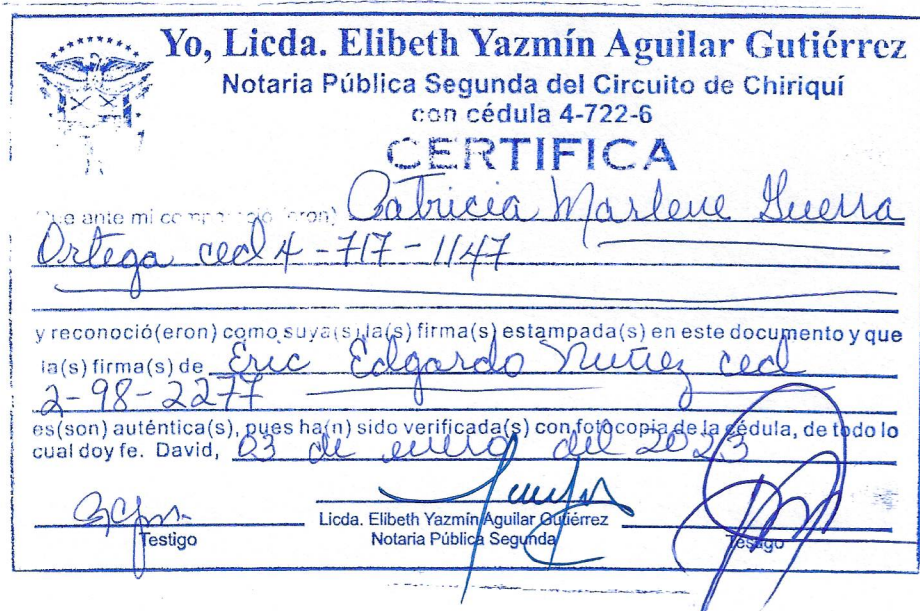 Yo, Licda. Elibeth Yazmín Aguilar Gutiérrez
Notaria Pública Segunda del Circuito de Chiriquí
con cédula 4-722-6
CERTIFICA
Que ante mi compareció(eron) Patricia Marlene Guerra
Ortega ced 4-717-1147
y reconoció(eron) como suya(s) la(s) firma(s) estampada(s) en este documento y que
la(s) firma(s) de Eric Edgardo Nuñez ced
2-98-2277
es(son) auténtica(s), pues ha(n) sido verificada(s) con fotocopia de la cédula, de todo lo
cual doy fe. David, 03 de enero del 2023
Licda. Elibeth Yazmín Aguilar Gutiérrez
Testigo Notaria Pública Segunda Testigo